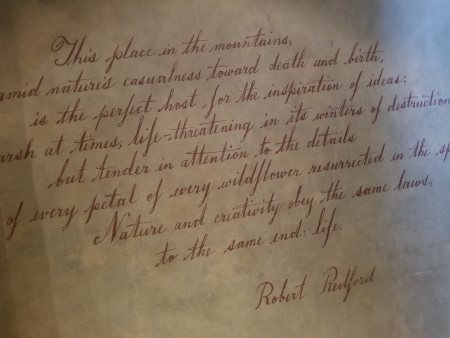 This place in the mountains,
amid nature's casualness toward death and birth,
is the perfect host for the inspiration of ideas:
arsh at times, life-threatening in its winters of destruction
but tender in attention to the details
of every petal of every wildflower resurrected in the sp
Nature and creativity obey the same laws,
to the same end: life.
Robert Redford